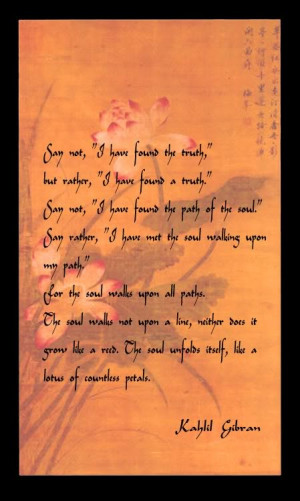 Say not, "I have found the truth,"
but rather, "I have found a truth."
Say not, "I have found the path of the soul."
Say rather, "I have met the soul walking upon
my path."
For the soul walks upon all paths.
The soul walks not upon a line, neither does it
grow like a reed. The soul unfolds itself, like a
lotus of countless petals.
Kahlil Gibran